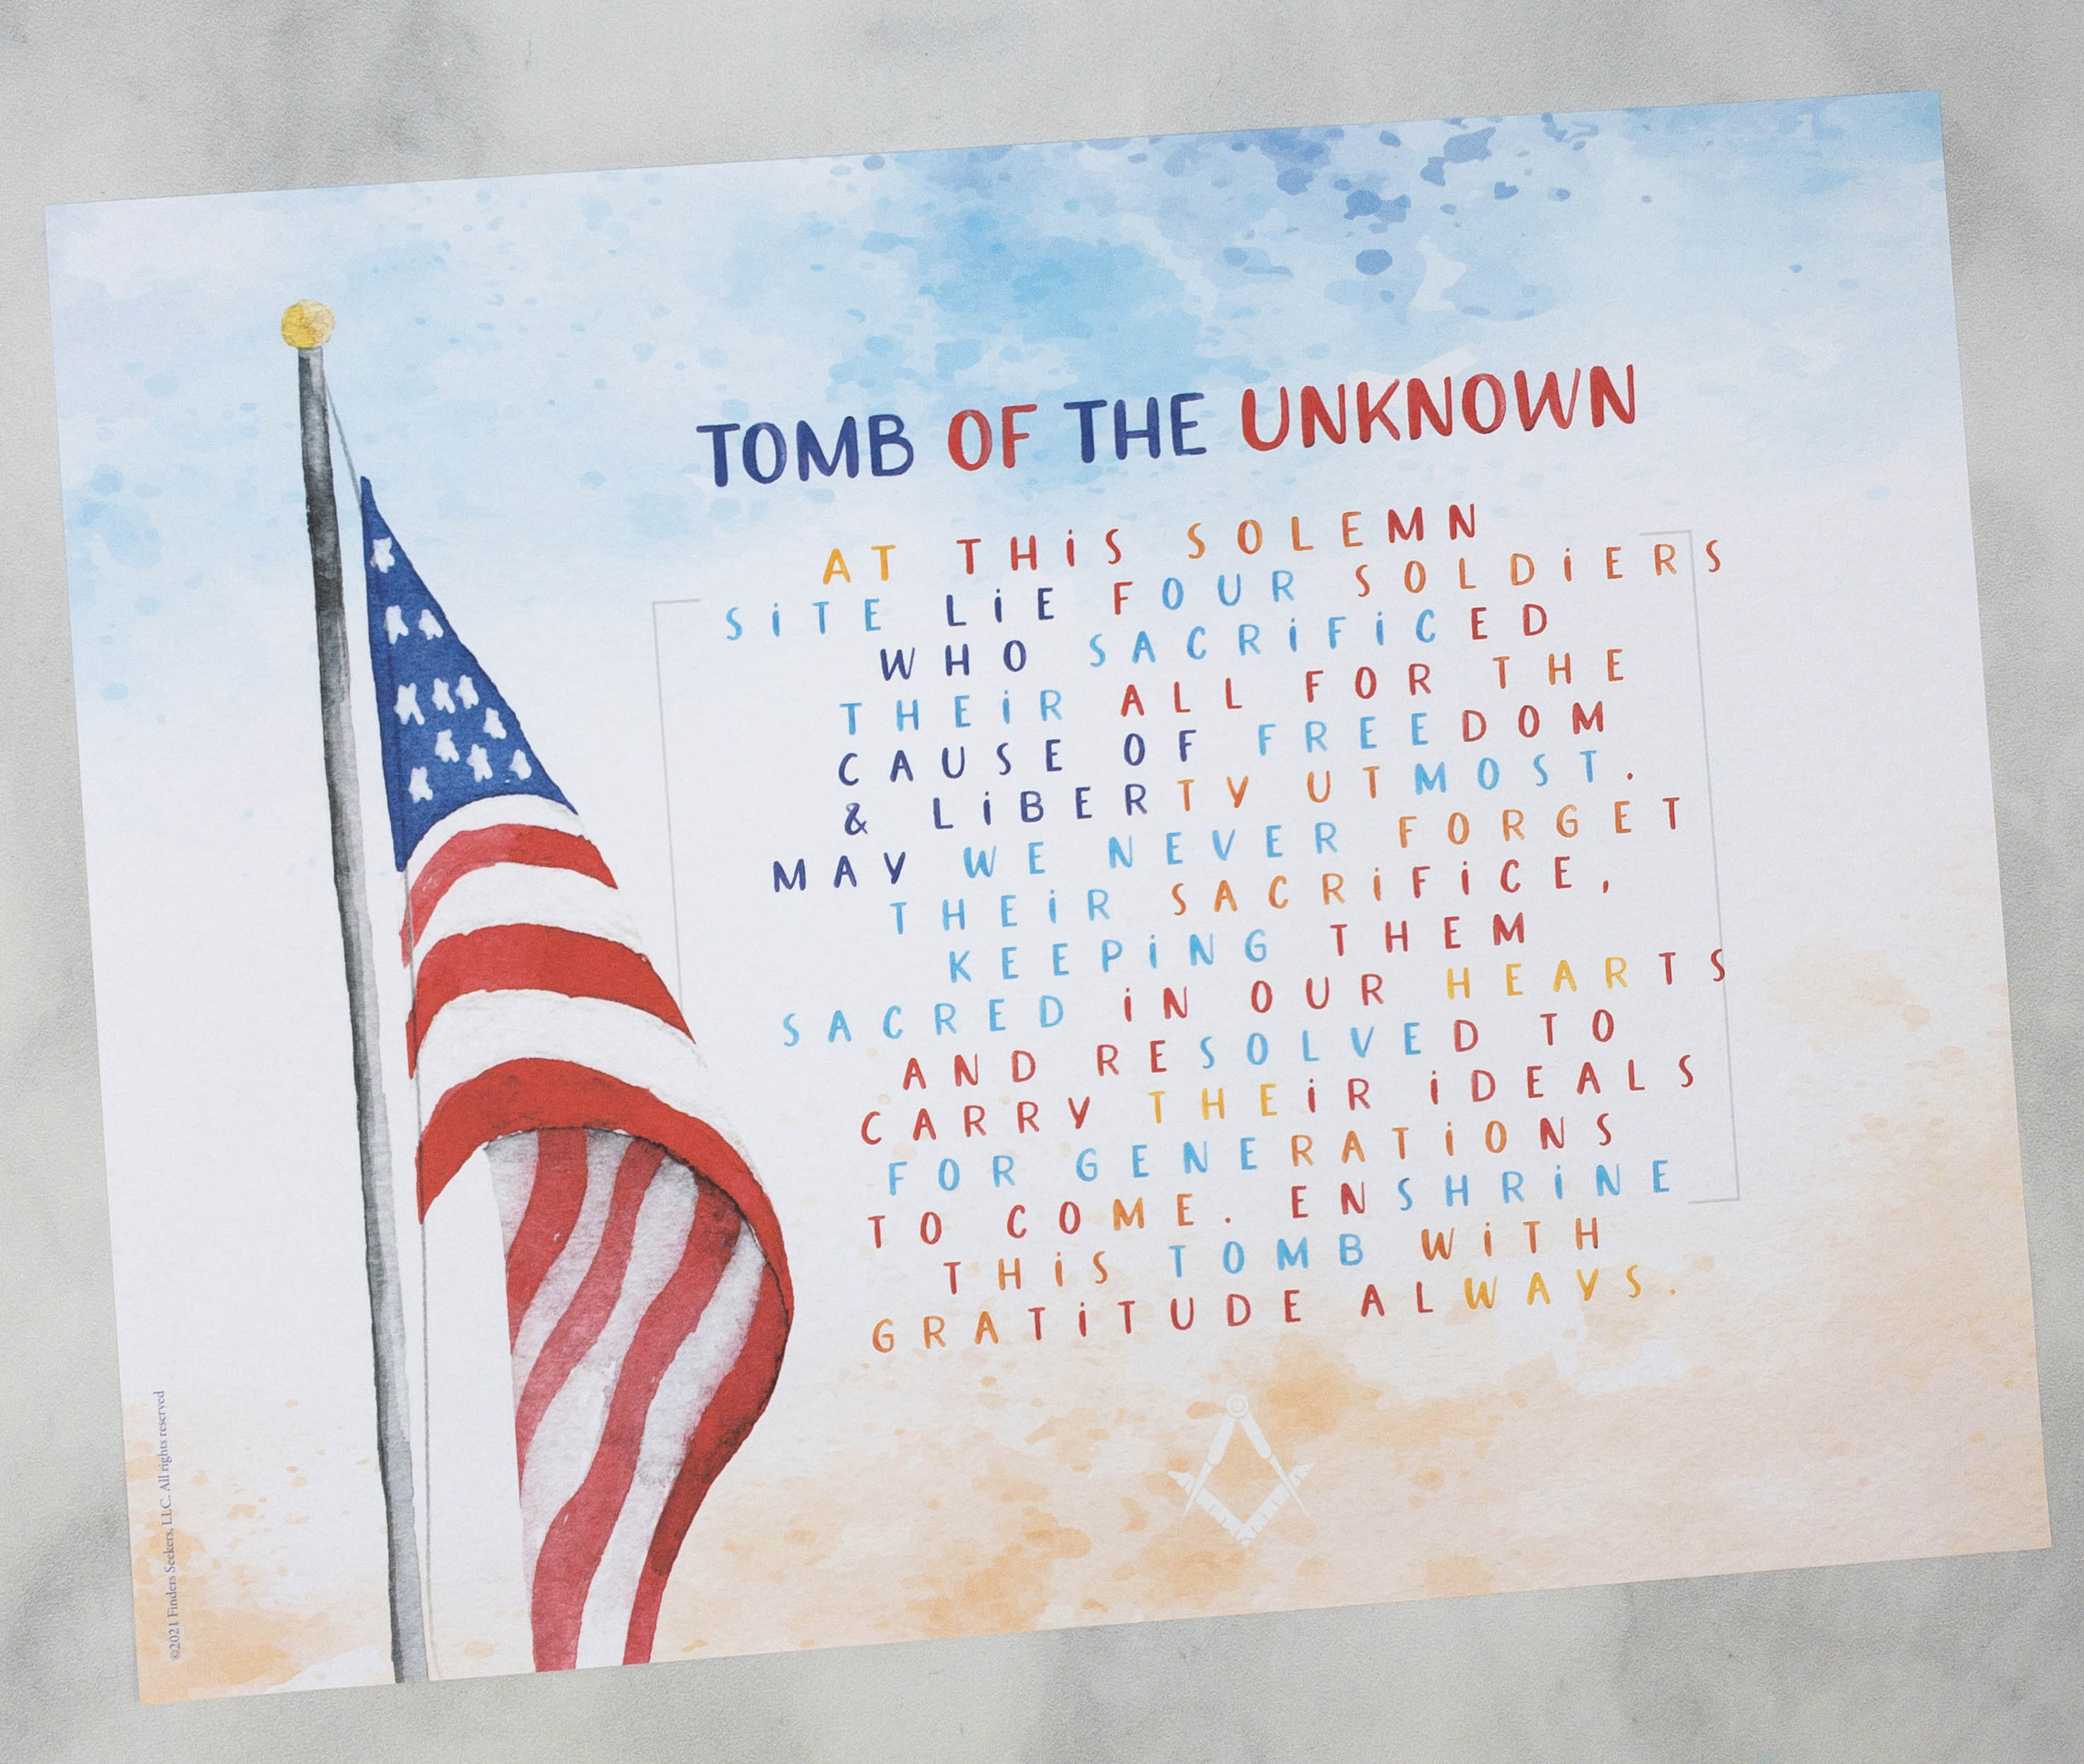 TOMB OF THE UNKNOWN
AT THiS SOLEMN
SiTE LiE FOUR SOLDiERS
WHO SACRiFiCED
THEiR ALL FOR THE
CAUSE OF FREEDOM
& LiBERTY UTMOST.
MAY WE NEVER FORGET
THEiR SACRiFiCE,
KEEPiNG THEM
SACRED iN OUR HEARTS
AND RESOLVED TO
CARRY THEiR iDEALS
FOR GENERATiONS
TO COME. ENSHRiNE
THiS TOMB WiTH
GRATiTUDE ALWAYS.
©2021 Finders Seekers, LLC. All rights reserved